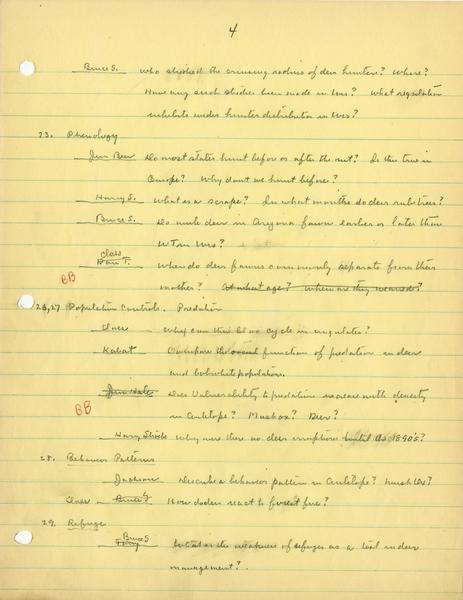 4
Bruce S. who studied the cruising radius of deer hunters? Where?
Have any such studies been made in Wis? What regulation
inhibits wider hunter distribution in Wis?
23. Phenology
Jim Beer Do most states hunt before or after the rut? Is this true in
Europe? Why dont we hunt before?
Harry S. What is a scrape? In what months do deer rub trees?
Bruce S. Do mule deer in Arizona fawn earlier or later than
WT in Wis?
Class
Dan T. When do deer fawns commonly separate from their
mother? At what age? When are they weaned?
BB
26,27 Population Controls. Predation
Class Why can there be no cycle in ungulates?
Kabat Compare the function of predation in deer
and bobwhite populations.
Jim Hale Does vulnerability to predation increase with density
in Antelope? Muskox? Deer?
BB
Harry Why were there no deer irruptions until the 1890's?
28. Behavior Patterns
Jackson Describe a behavior pattern in Antelope? Musk Ox?
Class Bruce S How do deer react to forest fire?
29. Refuge
Bruce S
Tony What is the weakness of refuges as a tool in deer
management?